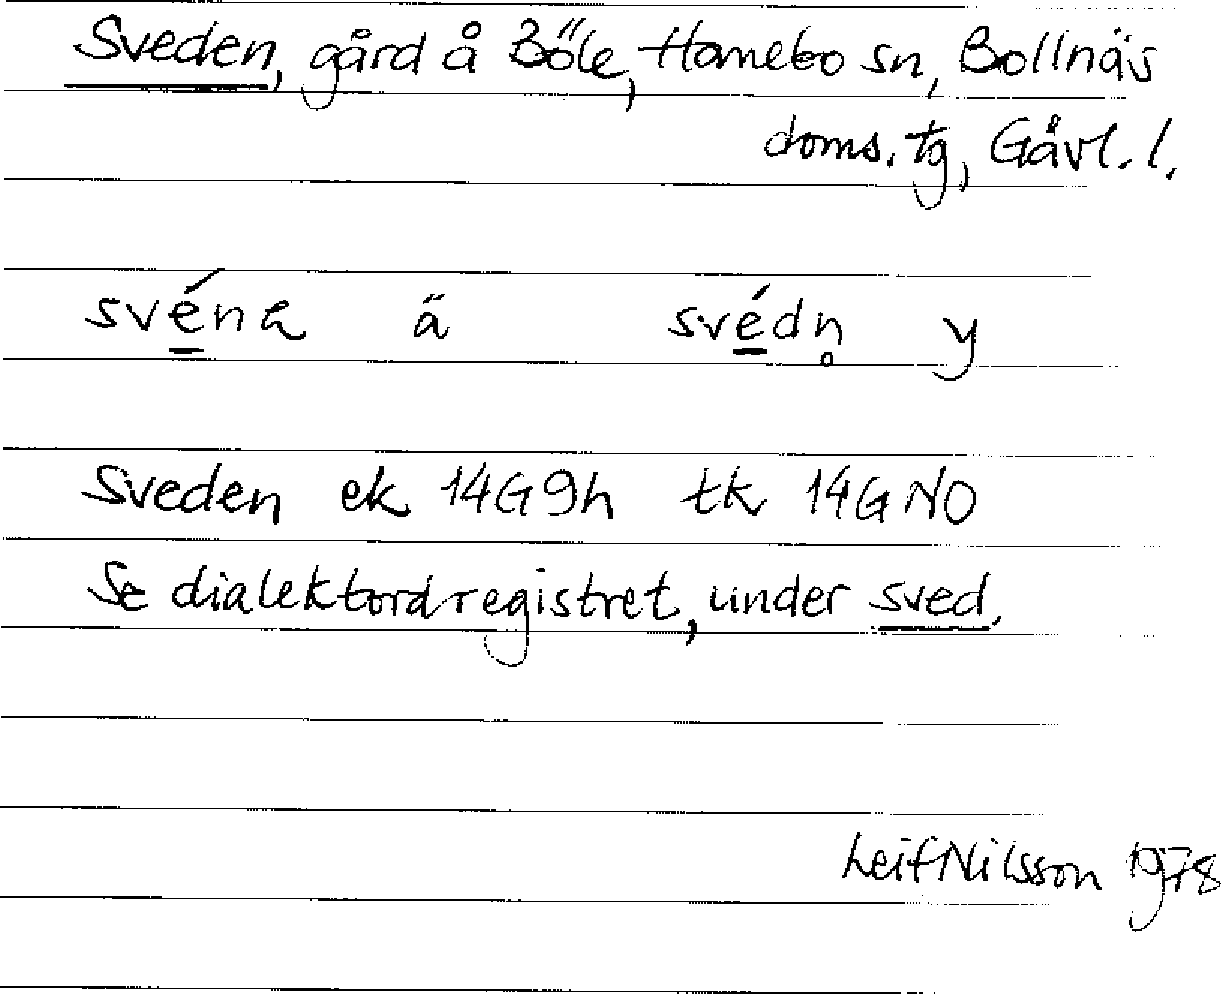 Sveden, gård å Böle, Hanebo sn, Bollnäs
doms. tg, Gävl. l.
svéna ä svédn̥ y
Sveden ek 14G9h tk 14GNO
Se dialektordregistret, under sved.
Leif Nilsson 1978